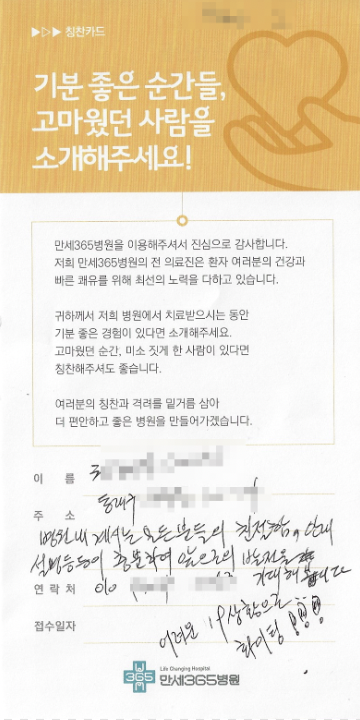 ▶▷▶ 칭찬카드
기분 좋은 순간들,
고마웠던 사람을
소개해주세요!
만세365병원을 이용해주셔서 진심으로 감사합니다.
저희 만세365병원의 전 의료진은 환자 여러분의 건강과
빠른 쾌유를 위해 최선의 노력을 다하고 있습니다.
귀하께서 저희 병원에서 치료받으시는 동안
기분 좋은 경험이 있다면 소개해주세요.
고마웠던 순간, 미소 짓게 한 사람이 있다면
칭찬해주셔도 좋습니다.
여러분의 칭찬과 격려를 밑거름 삼아
더 편안하고 좋은 병원을 만들어가겠습니다.
이 름
동래구
주 소
병원내 계시는 모든분들의 친절함, 안내
설명등등이 충분하며 앞으로의 발전을
기대해 봅니다
연 락 처 010
어려운 상황으로
접수일자 화이팅!!!
Life Changing Hospital
365 만세365병원